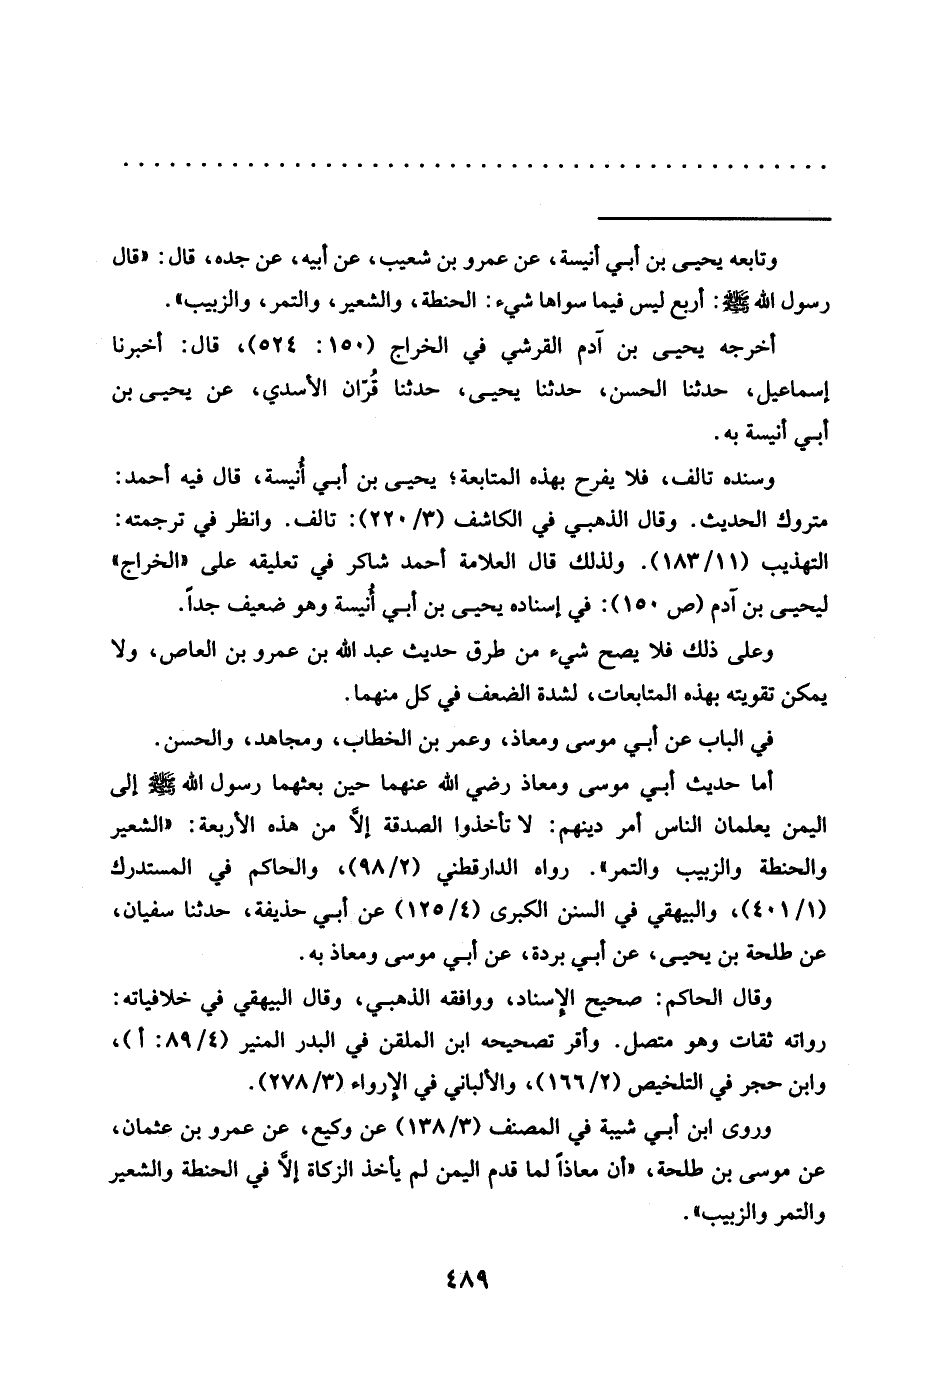 . . . . . . . . . . . . . . . . . . . . . . . . . . . . . . . . . . . . . . . . . . . . . .
وتابعه يحيى بن أبي أنيسة، عن عمرو بن شعيب، عن أبيه، عن جده، قال: «قال
رسول الله ﷺ: أربع ليس فيما سواها شيء: الحنطة، والشعير، والتمر، والزبيب».
أخرجه يحيى بن آدم القرشي في الخراج (١٥٠: ٥٢٤)، قال: أخبرنا
إسماعيل، حدثنا الحسن، حدثنا يحيى، حدثنا قُرّان الأسدي، عن يحيى بن
أبي أنيسة به.
وسنده تالف، فلا يفرح بهذه المتابعة؛ يحيى بن أبي أُنيسة، قال فيه أحمد:
متروك الحديث. وقال الذهبي في الكاشف (٢٢٠/٣): تالف. وانظر في ترجمته:
التهذيب (١٨٣/١١). ولذلك قال العلامة أحمد شاكر في تعليقه على «الخراج»
ليحيى بن آدم (ص ١٥٠): في إسناده يحيى بن أبي أُنيسة وهو ضعيف جداً.
وعلى ذلك فلا يصح شيء من طرق حديث عبد الله بن عمرو بن العاص، ولا
يمكن تقويته بهذه المتابعات، لشدة الضعف في كل منهما.
في الباب عن أبي موسى ومعاذ، وعمر بن الخطاب، ومجاهد، والحسن.
أما حديث أبي موسى ومعاذ رضي الله عنهما حين بعثهما رسول الله ﷺ إلى
اليمن يعلمان الناس أمر دينهم: لا تأخذوا الصدقة إلاَّ من هذه الأربعة: «الشعير
والحنطة والزبيب والتمر». رواه الدارقطني (٩٨/٢)، والحاكم في المستدرك
(٤٠١/١)، والبيهقي في السنن الكبرى (١٢٥/٤) عن أبي حذيفة، حدثنا سفيان،
عن طلحة بن يحيى، عن أبي بردة، عن أبي موسى ومعاذ به.
وقال الحاكم: صحيح الإسناد، ووافقه الذهبي، وقال البيهقي في خلافياته:
رواته ثقات وهو متصل. وأقر تصحيحه ابن الملقن في البدر المنير (٨٩/٤: أ)،
وابن حجر في التلخيص (١٦٦/٢)، والألباني في الإرواء (٢٧٨/٣).
وروى ابن أبي شيبة في المصنف (١٣٨/٣) عن وكيع، عن عمرو بن عثمان،
عن موسى بن طلحة، «أن معاذاً لما قدم اليمن لم يأخذ الزكاة إلاَّ في الحنطة والشعير
والتمر والزبيب».
٤٨٩